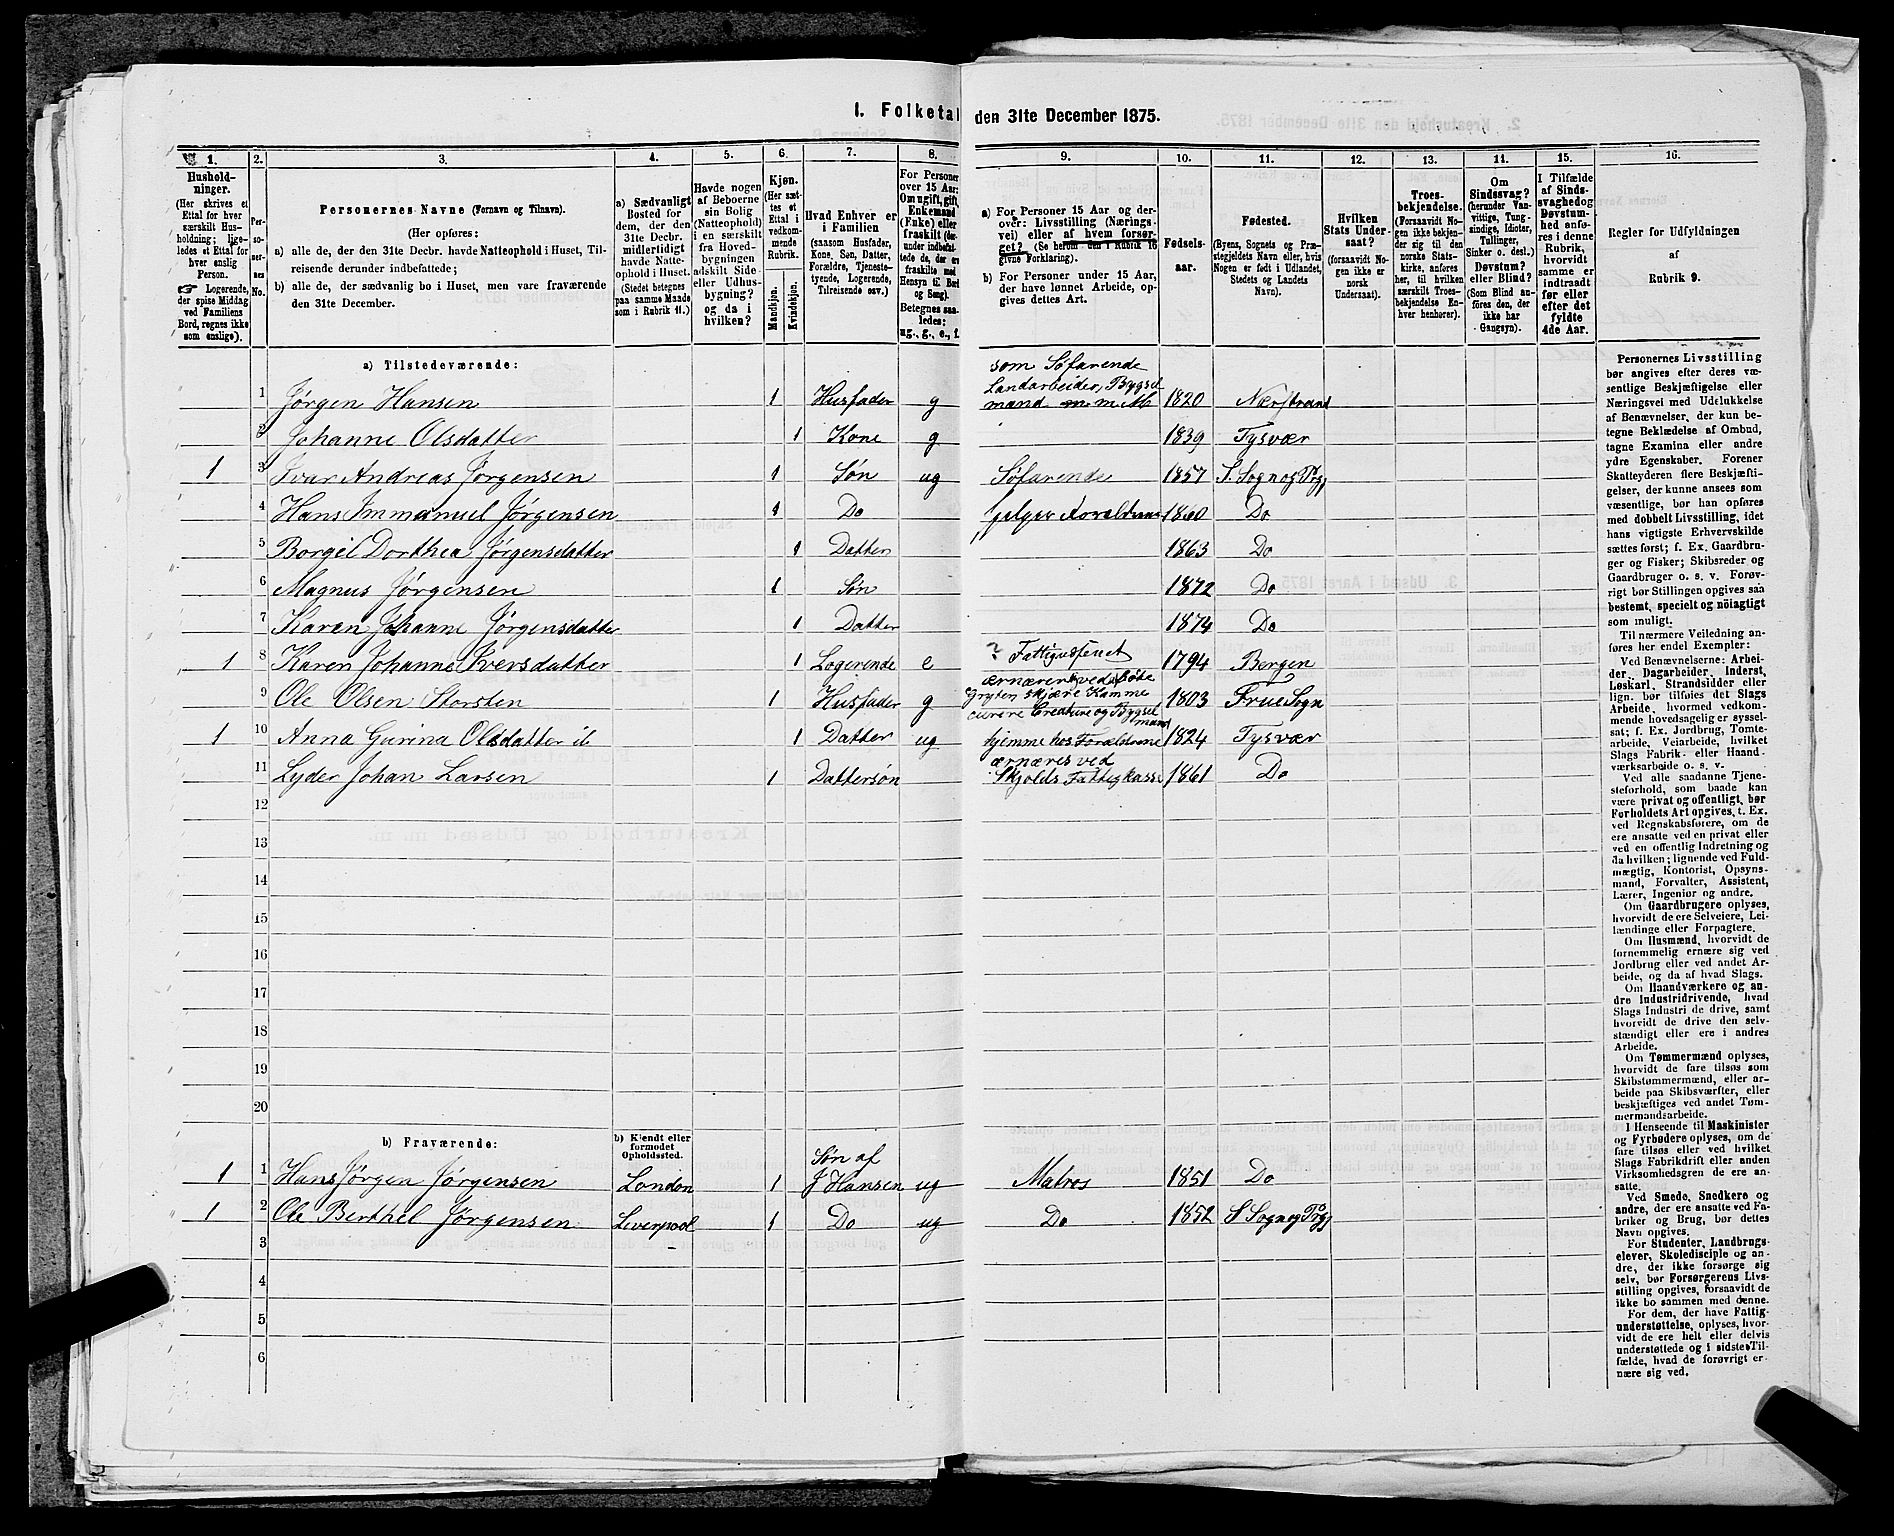 I. Folketal den 31te December 1875.
1. 2. 3. 4. 5. 6. 7. 8. 9. 10. 11. 12. 13. 14. 15. 16.
Hushold-
ninger.
(Her skrives et
Ettal for hver
særskilt Hus-
holdning; lige-
ledes et Ettal for
hver enslig
Person.
☞ Logerende,
der spise Middag
ved Familiens
Bord, regnes ikke
som enslige).
Per-
so-
ner-
nes
No.
Personernes Navne (Fornavn og Tilnavn).
(Her opføres:
a) alle de, der den 31te Decbr. havde Natteophold i Huset, Til-
reisende derunder indbefattede;
b) alle de, der sædvanlig bo i Huset, men vare fraværende
den 31te December.
a) Sædvanligt
Bosted for
dem, der den
31te Decbr.
midlertidigt
havde Natte-
ophold i Huset.
(Stedet betegnes
paa samme Maade
som i Rubrik 11.)
Havde nogen
af Beboerne
sin Bolig
(Natteophold)
i en særskilt
fra Hoved-
bygningen
adskilt Side-
eller Udhus-
bygning?
og da i
hvilken?
Kjøn.
(Her sæt-
tes et
Ettal i
vedkom-
mende
Rubrik.
Mandkjøn.
Kvindekjøn.
Hvad Enhver er
i Familien
(saasom Husfader,
Kone, Søn, Datter,
Forældre, Tjeneste-
tyende, Logerende,
Tilreisende osv.)
For Personer
over 15 Aar:
Om ugift, gift,
Enkemand
(Enke) eller
fraskilt
Betegnes saa-
ledes:
ug., g., e., f.
a) For Personer 15 Aar og der-
over: Livsstilling (Nærings-
vei) eller af hvem forsør-
get? (Se herom den i Rubrik 16
givne Forklaring).
b) For Personer under 15 Aar,
der have lønnet Arbeide, op-
gives dettes Art.
Fødsels-
aar.
Fødested.
(Byens, Sognets og Præ-
stegjeldets Navn eller, hvis
Nogen er født i Udlandet,
Stedets og Landets
Navn).
Hvilken
Stats Under-
saat?
(forsaavidt No-
gen ikke er
norsk
Undersaat).
Troes-
bekjendelse.
(Forsaavidt No-
gen ikke bekjen-
der sig til den
norske Stats-
kirke, anføres
her, til hvilken
særskilt Troes-
bekjendelse En-
hver henhører).
Om
Sindssvag?
(herunder Van-
vittige, Tung-
sindige, Idioter,
Tullinger,
Sinker o. desl.)
Døvstum?
eller Blind?
(Som Blind an-
føres den, der
ikke har
Gangsyn).
I Tilfælde
af Sinds-
svaghed og
Døvstum-
hed anfø-
res i denne
Rubrik,
hvorvidt
samme er
indtraadt
før eller
efter det
fyldte
4de Aar.
Regler for Udfyldningen
af
Rubrik 9.
a) Tilstedeværende:
1 Jørgen Hansen 1 Husfader g som Søfarende Landarbeider, Bygselmand 1820 Nærstrand
2 Johanne Olsdatter 1 Kone g 1839 Tysvær
1 3 Ivar Andreas Jørgensen 1 Søn ug Søfarende 1857 S. Sogn og Prgj
4 Hans Immanuel Jørgensen 1 Do 1860 Do
5 Borgel Dorthea Jørgensdatter 1 Datter 1863 Do
6 Magnus Jørgensen 1 Søn 1872 Do
7 Karen Johanne Jørgensdatter 1 Datter 1874 Do
1 8 Karen Johanne Iversdatter 1 Logerende e 1794 Bergen
9 Ole Olsen Storsten 1 Husfader g ernærer ved skjære Kamme Creature og Bygselmand 1803 Frue Sogn
1 10 Anna Gurina Olsdatter 1 Datter ug hjemme hos Forældrene 1824 Tysvær
11 Lyder Johan Larsen 1 Dattersøn ernæres ved Skjolds Fattigkasse 1861 Do
12
13
14
15
16
17
18
19
20
b) Fraværende:
b) Kjendt eller
formodet
Opholdssted.
1 1 Hans Jørgen Jørgensen London 1 Søn af J Hansen ug Matros 1851 Do
1 2 Ole Berthel Jørgensen Liverpool 1 Do ug Do 1852 S Sogn og Prgj
3
4
5
6
Personernes Livsstilling
bør angives efter deres væ-
sentlige Beskjæftigelse eller
Næringsvei med Udelukkelse
af Benævnelser, der kun be-
tegne Beklædelse af Ombud,
tagne Examina eller andre
ydre Egenskaber. Forener
Skatteyderen flere Beskjæfti-
gelser, der kunne ansees som
væsentlige, bør han opføres
med dobbelt Livsstilling, idet
hans vigtigste Erhvervskilde
sættes først; f. Ex. Gaardbru-
ger og Fisker; Skibsreder og
Gaardbruger o. s. v. Forøv-
rigt bør Stillingen opgives saa
bestemt, specielt og nøiagtigt
som muligt.
Til nærmere Veiledning an-
føres her endel Exempler:
Ved Benævnelserne: Arbei-
der, Dagarbeider, Inderst,
Løskarl, Strandsidder eller
lign. bør tilføies det Slags
Arbeide, hvormed vedkom-
mende hovedsagelig er syssel-
sat; f. Ex. Jordbrug, Tomte-
arbeide, Veiarbeide, hvilket
Slags Fabrik- eller Haand-
værksarbeide o. s. v.
Ved alle saadanne Tjene-
steforhold, som baade kan
være privat og offentligt, bør
Forholdets Art opgives, t. Ex.
ved Regnskabsførere, om de
ere ansatte ved en privat eller
ved en offentlig Indretning og
da hvilken; lignende ved Fuld-
mægtig, Kontorist, Opsyns-
mand, Forvalter, Assistent,
Lærer, Ingeniør og andre.
Om Gaardbrugere oplyses,
hvorvidt de ere Selveiere, Lei-
lændinge eller Forpagtere.
Om Husmænd, hvorvidt de
fornemmelig ernære sig ved
Jordbrug eller ved andet Ar-
beide, og da af hvad Slags.
Om Haandværkere og an-
dre Industridrivende, hvad
Slags Industri de drive, samt
hvorvidt de drive den selv-
stændigt eller ere i andres
Arbeide.
Om Tømmermænd oplyses,
hvorvidt de fare tilsøs som
Skibstømmermænd, eller ar-
beide paa Skibsværfter, eller
beskjæftiges ved andet Tøm-
mermandsarbeide.
I Henseende til Maskinister
og Fyrbødere oplyses, om de
fare tilsøs eller ved hvilket
Slags Fabrikdrift eller anden
Virksomhedsgren de ere an-
satte.
Ved Smede, Snedkere og
andre, der ere ansatte ved Fa-
briker og Brug, bør dettes
Navn opgives.
For Studenter, Landbrugs-
elever, Skoledisciple og an-
dre, der ikke forsørge sig
selv, bør Forsørgerens Livs-
stilling opgives, forsaavidt de
ikke bo sammen med denne.
For dem, der have Fattig-
understøttelse, oplyses, hvor-
vidt de ere helt eller delvis
understøttede og i sidste Til-
fælde, hvad de forøvrigt er-
nære sig ved.